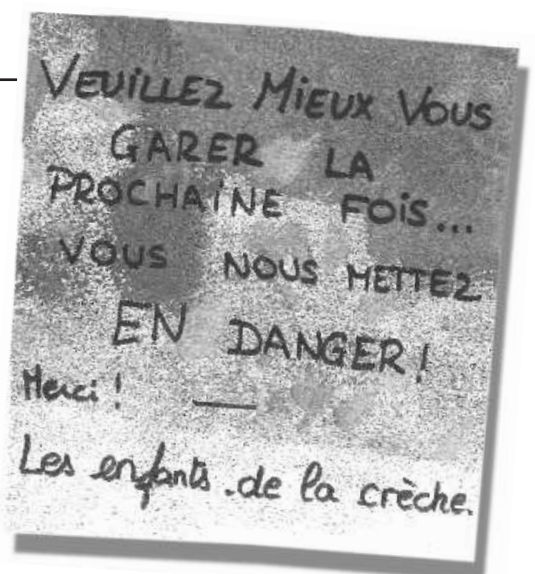 VEUILLEZ MIEUX VOUS
GARER LA
PROCHAINE FOIS...
VOUS NOUS METTEZ
EN DANGER!
Merci!
Les enfants de la crèche.